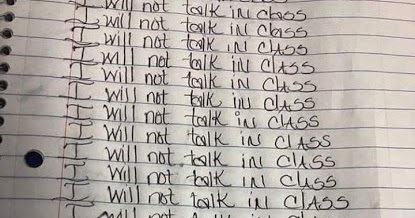 I will not talk iN class
I will not talk iN class
I will not talk iN CLASS
I will not talk iN CLASS
I will not talk iN CLASS
I will not talk iN CLASS
I will not talk iN CLASS
I will not talk iN CLASS
I will not talk iN CLASS
I will not talk iN CLASS
I will not talk iN CLASS